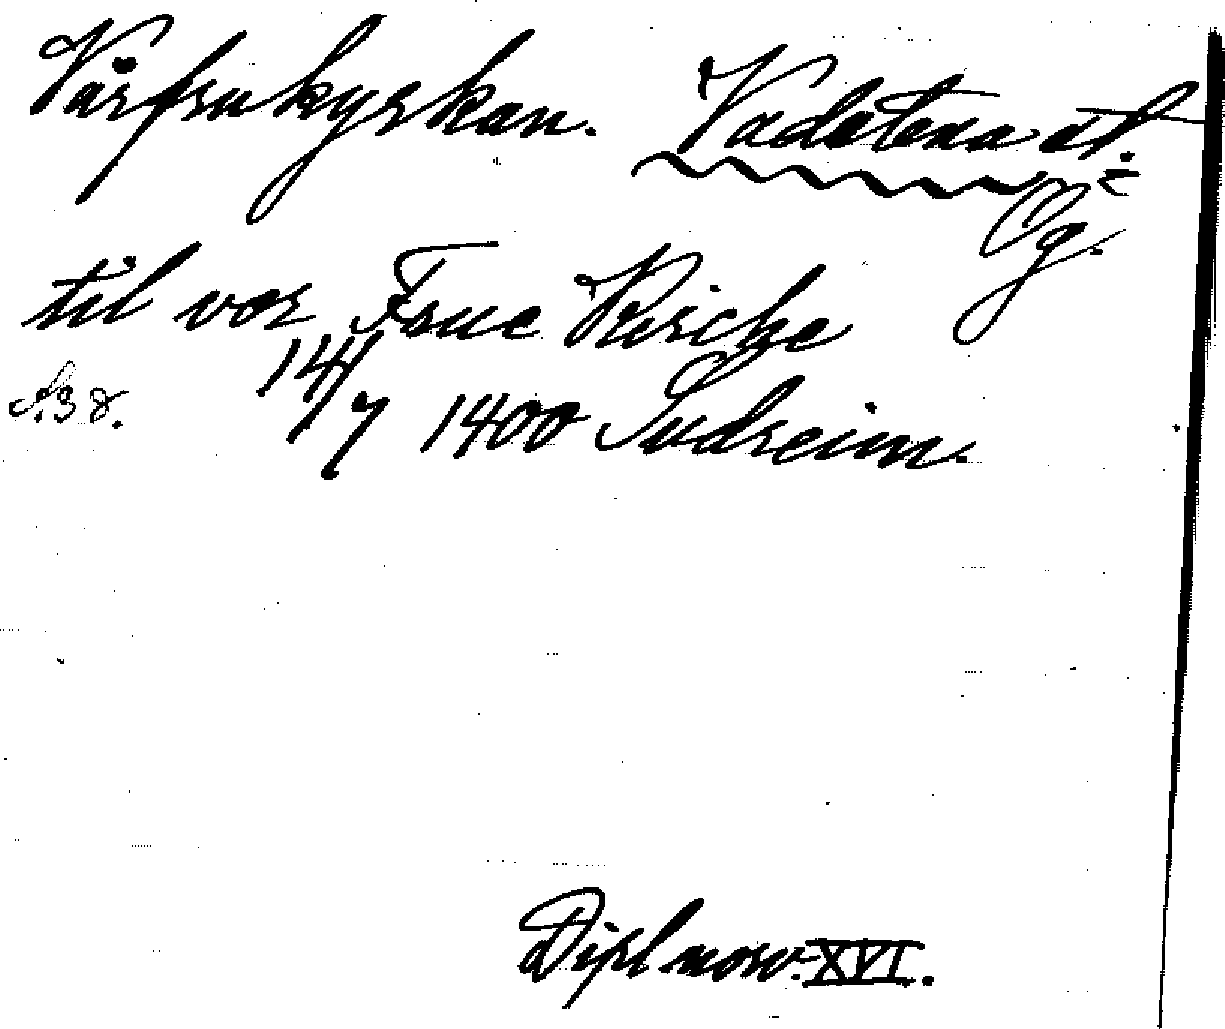 Vårfrukyrkan. Vadstena st.
Ög.
til vor Frue Kirche
A.38. 14/7 1400 Sudreim.
Dipl norv. XVI.